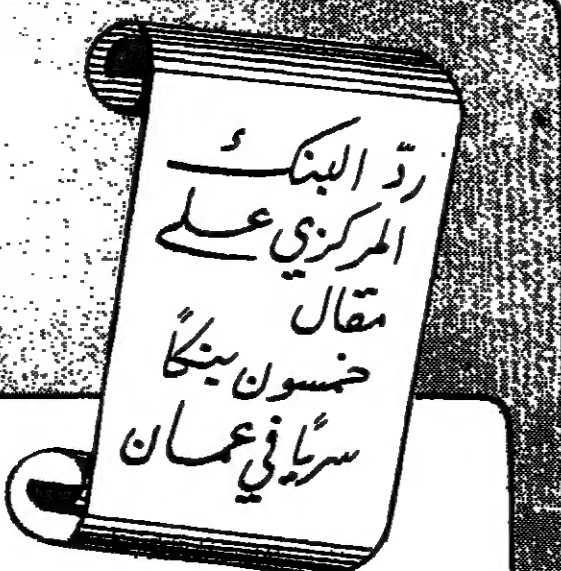 ردّ البنك
المركزي على
مقال
خمسون بنكًا
سريًا في عمان